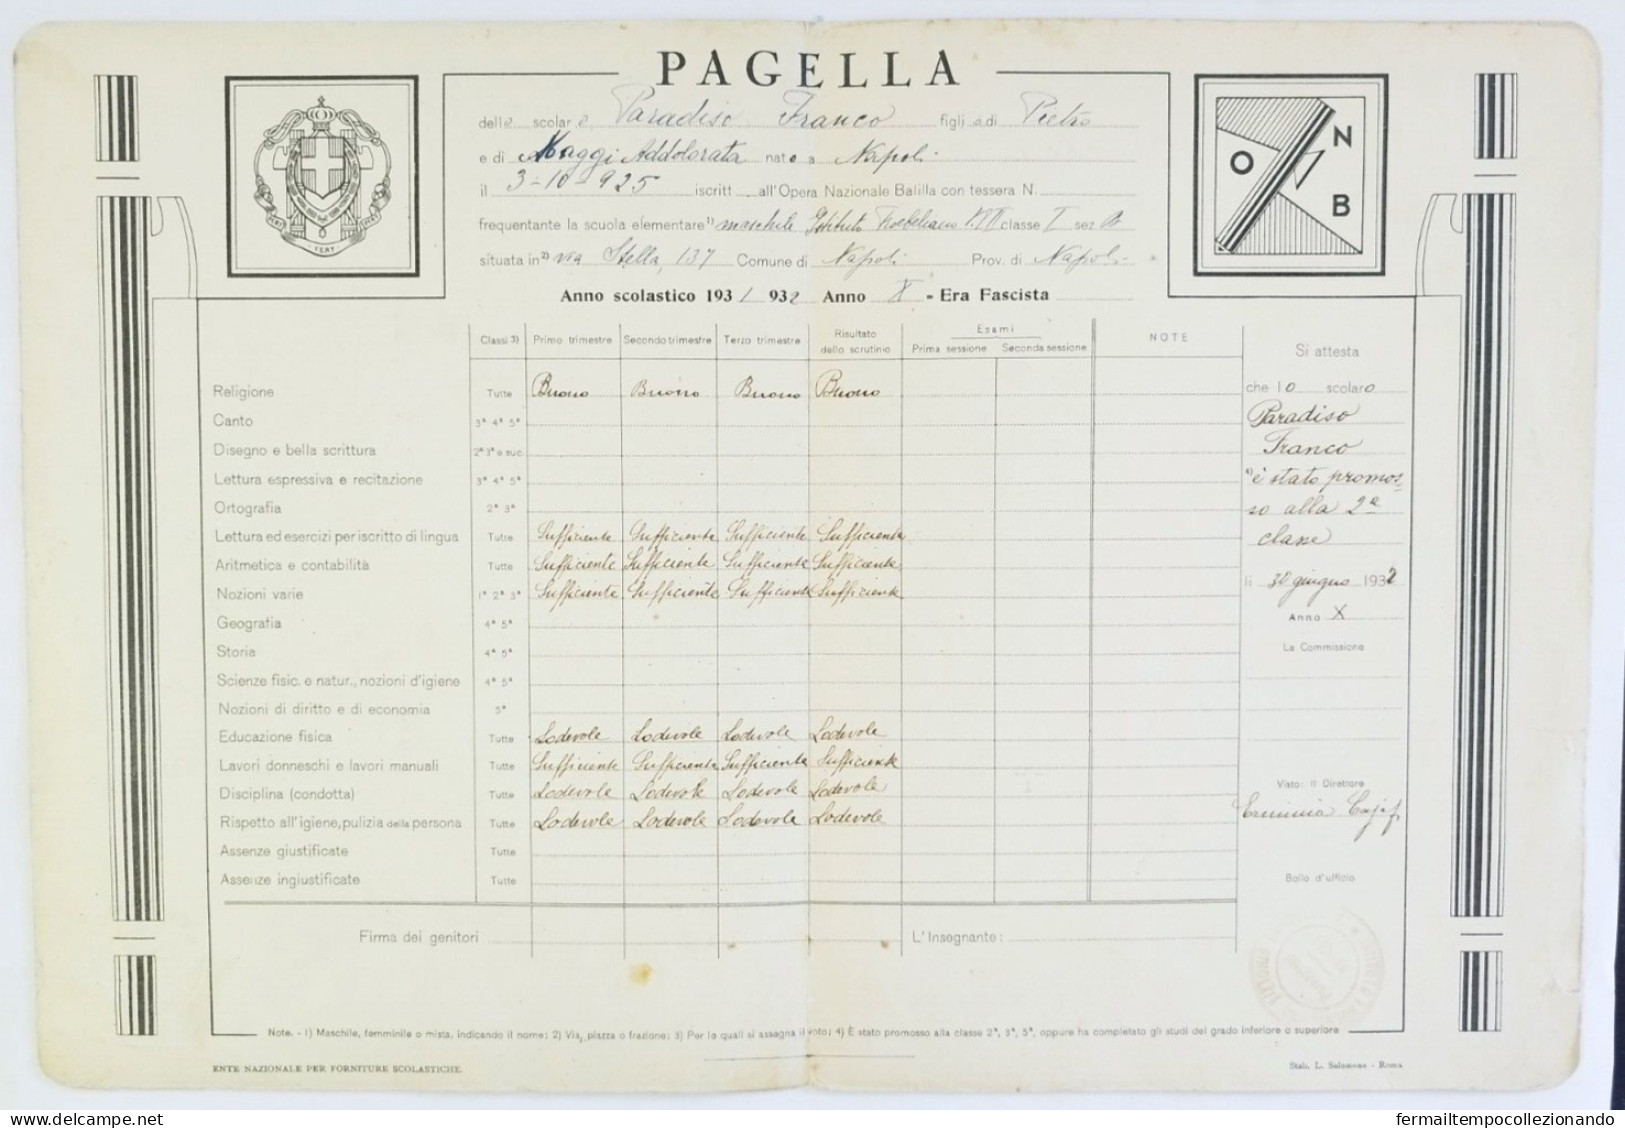 PAGELLA
dello scolaro Paradiso Franco figlio di Pietro
e di Maggi Addolorata nato a Napoli
il 3-10-925 iscritt all'Opera Nazionale Balilla con tessera N.
frequentante la scuola elementare 1) maschile Istituto classe I sez B
situata in 2) via Stella, 137 Comune di Napoli Prov. di Napoli
Anno scolastico 1931/932 Anno X - Era Fascista
O N B
FERT
Classi 3) Primo trimestre Secondo trimestre Terzo trimestre Risultato dello scrutinio Esami Prima sessione Seconda sessione NOTE
Religione Tutte Buono Buono Buono Buono
Canto 3ª 4ª 5ª
Disegno e bella scrittura 2ª 3ª e suc.
Lettura espressiva e recitazione 3ª 4ª 5ª
Ortografia 2ª 3ª
Lettura ed esercizi per iscritto di lingua Tutte Sufficiente Sufficiente Sufficiente Sufficiente
Aritmetica e contabilità Tutte Sufficiente Sufficiente Sufficiente Sufficiente
Nozioni varie 1ª 2ª 3ª Sufficiente Sufficiente Sufficiente Sufficiente
Geografia 4ª 5ª
Storia 4ª 5ª
Scienze fisic. e natur., nozioni d'igiene 4ª 5ª
Nozioni di diritto e di economia 5ª
Educazione fisica Tutte Lodevole Lodevole Lodevole Lodevole
Lavori donneschi e lavori manuali Tutte Sufficiente Sufficiente Sufficiente Sufficiente
Disciplina (condotta) Tutte Lodevole Lodevole Lodevole Lodevole
Rispetto all'igiene, pulizia della persona Tutte Lodevole Lodevole Lodevole Lodevole
Assenze giustificate Tutte
Assenze ingiustificate Tutte
Firma dei genitori L'Insegnante:
Si attesta
che lo scolaro
Paradiso
Franco
4) è stato promos-
so alla 2ª
classe
lì 30 giugno 1932
Anno X
La Commissione
Visto: Il Direttore
Erminia
Bollo d'ufficio
Note. - 1) Maschile, femminile o mista, indicando il nome; 2) Via, piazza o frazione; 3) Per le quali si assegna il voto; 4) È stato promosso alla classe 2ª, 3ª, 5ª, oppure ha completato gli studi del grado inferiore o superiore
ENTE NAZIONALE PER FORNITURE SCOLASTICHE.
Stab. L. Salomone - Roma
fermailtempocollezionando